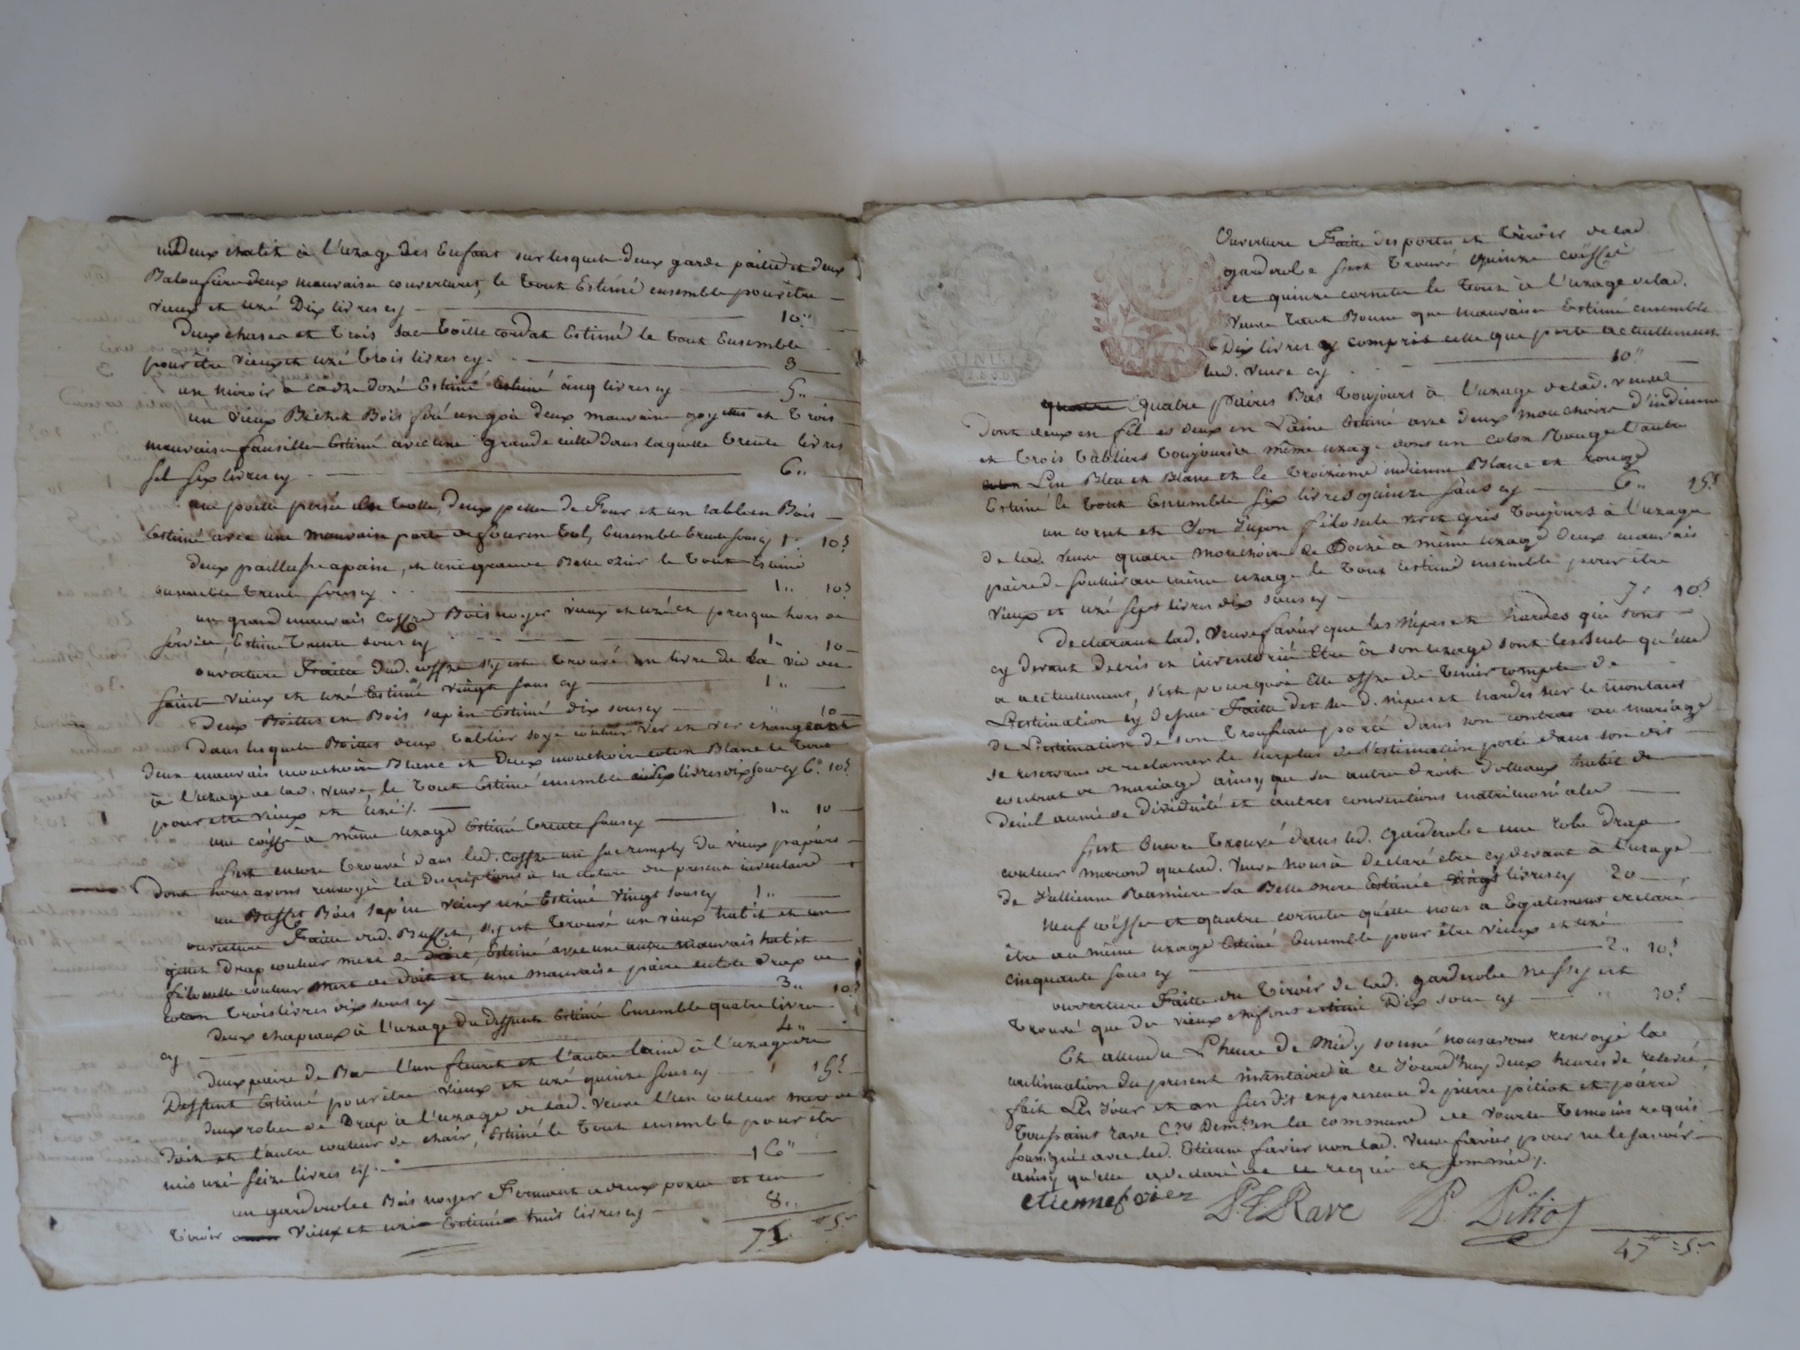 Deux chalit à l'uzage des Enfant sur lesquels deux garde paillie et deux
Balousiere deux mauvaise couvertures, le tout Estimé ensemble pour être
vieux et uzé Dix livres cy 10"
deux chases et trois sac toille cordat Estimé le tout Ensemble
pour être vieux et uzé trois livres cy 3
un miroir a cadre doré Estimé Estimé cinq livres cy 5"
un vieux Bichet Bois deux mauvaise et trois
mauvaise faucille Estimé avec une grande dans laquelle trente livres
sel six livres cy 6"
une poille persée en tolle, deux pelle de four et un table en Bois
Estimé avec une mauvaise porte de four en tol, Ensemble trente sous cy 1" 10s
deux paillasse apain, et une grande le tout Estimé
ensemble trente sous cy 1" 10s
un grand mauvais coffre Bois noyer vieux et uzé et presque hors de
service, Estimé trente sous cy 1" 10
ouverture Faitte dud. coffre s'y est trouvé un livre de la vie des
saint vieux et uzé Estimé vingt sous cy 1"
Deux Boittes en Bois sapin Estimé dix sous cy " 10
dans lesquels Boittes deux tablier soye couleur ver et ver changeant
deux mauvais mouchoirs Blanc et deux mouchoirs coton Blanc le tout
à l'uzage de lad. veuve, le tout Estimé ensemble six livres dix sous cy 6" 10s
pour etre vieux et uzé
une coiffe à même uzage Estimé trente sous cy 1" 10
s'est encore trouvé dans led. coffre un sac remply de vieux papiers
dont nous avons renvoyé la description à la cloture du present inventaire
un Buffet Bois sapin vieux uzé Estimé vingt sous cy 1"
ouverture Faitte dud. Buffet, s'y est trouvé un vieux habit et un
gilet drap couleur mere de Doit, Estimé avec une autre mauvais habit
filoselle couleur mere de Doit et une mauvaise paire culote drap de
coton trois livres dix sous cy 3" 10s
deux chapeaux à l'uzage du deffunt Estimé Ensemble quatre livres
cy 4"
deux paire de Bas l'un fleuret et l'autre laine à l'uzage du
Deffunt Estimé pour être vieux et uzé quinze sous cy " 15s
deux robes de Drap à l'uzage de lad. veuve l'un couleur mere de
doit et l'autre couleur de chair, Estimé le tout ensemble pour être
mis uzé seize livres cy 16"
un garderobe Bois noyer Fermant a deux porte et un
tiroir vieux et uzé Estimé huit livres cy 8"
71" 5s
Ouverture Faitte des portes et tiroir de lad.
garderobe s'est trouvé quinze coiffes
et quinze cornettes le tout à l'uzage de lad.
veuve tout Bonne que mauvaise Estimé ensemble
Dix livres y compris celle que porte actuellement
lad. veuve cy 10"
quatre Quatre paires Bas toujours à l'uzage de lad. veuve
dont deux en fil et deux en Laine Estimé avec deux mouchoirs d'indienne
et trois tabliers toujours à même uzage dont un coton Rouge l'autre
Lin Bleu et Blanc et le troizieme indienne Blanc et rouge
Estimé le tout Ensemble six livres quinze sous cy 6" 15s
un corset et son Jupon filoselle vert gris toujours à l'uzage
de lad. veuve quatre mouchoirs de Poche a même uzage deux mauvais
paire de soulier au même uzage le tout Estimé ensemble pour être
vieux et uzé sept livres dix sous cy 7" 10s
declarant lad. Veuve favier que les Nipes et hardes qui sont
cy devant decris et inventorié Etre à son uzage sont les seule qu'elle
a actuellement, c'est pourquoi Elle offre de tenir compte de
L'estimation cy dessus Faitte des su d. nipes et hardes sur le montant
de L'estimation de son trousseau porté dans son contrat de mariage
se reservant de reclamer le surplus de l'estimation porté dans son dit
contrat de mariage ainsy que ses autre droits habit de
deuil année de viduité et autres conventions matrimoniales
s'est Encore trouvé dans lad. garderobe une robe drap
couleur marond que lad. Veuve nous à declaré etre cy devant à l'uzage
de Jullienne Reaniere sa Belle mere Estimée vingt livres cy 20
Neuf coiffes et quatre cornettes qu'elle nous a Egalement declaré
être au même uzage Estimé Ensemble pour être vieux et uzé
cinquante sous cy 2" 10s
ouverture Faitte du tiroir de lad. garderobe ne s'y est
trouvé que de vieux chifons estimé Dix sous cy " 10s
Et attendu L'heure de Midy sonné nous avons renvoyé la
continuation du present inventaire à ce Jourd'huy deux heures de relevé,
fait Les Jour et an susdit en presence de pierre pitiot et pierre
toussaint rave Cns Demt. en la commune de vourle temoins requis
soussignés avec led. Etienne favier non lad. veuve favier pour ne le savoir
ainsy qu'elle a declaré de ce requis et sommé
etienne favier P.T Rave P. Pitiot
47" 5s